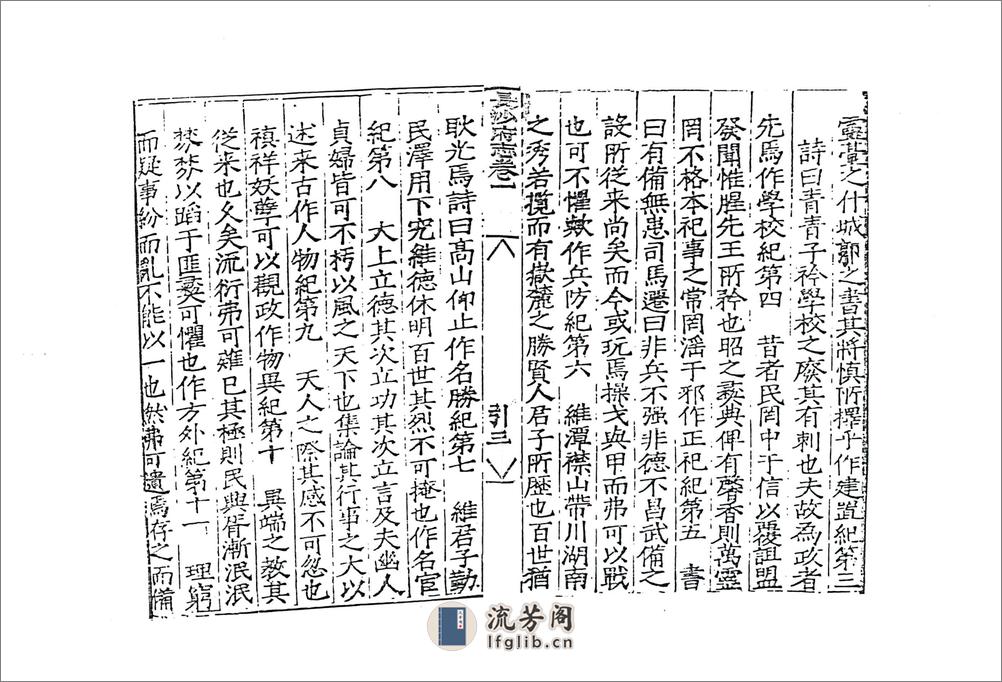 靈臺之什城郭之書其將慎所擇乎作建置紀第三
詩曰青青子衿學校之廢其有刺也夫故為政者
先焉作學校紀第四　昔者民罔中于信以覆詛盟
發聞惟腥先王所矜也昭之彛典俾有馨香則萬靈
罔不格本祀事之常罔滛于邪作正祀紀第五　書
曰有備無患司馬遷曰非兵不强非德不昌武備之
設所從来尚矣而今或玩焉操戈與甲而弗可以戰
也可不懼歟作兵防紀第六　維潭襟山帶川湖南
之秀若攬而有嶽麓之勝賢人君子所歴也百世猶
長沙府志卷一
引三
耿光焉詩曰高山仰止作名勝紀第七　維君子勤
民澤用下究維德休明百世其烈不可掩也作名宦
紀第八　大上立德其次立功其次立言及夫幽人
貞婦皆可不朽以風之天下也集論其行事之大以
述来古作人物紀第九　天人之際其感不可忽也
禎祥妖孽可以觀政作物異紀第十　異端之教其
從来也久矣流衍弗可薙已其極則民與胥漸泯泯
棼棼以蹈于匪彛可懼也作方外紀第十一　理窮
而疑事紛而亂不能以一也然弗可遺焉存之而備
流芳阁
lfglib.cn